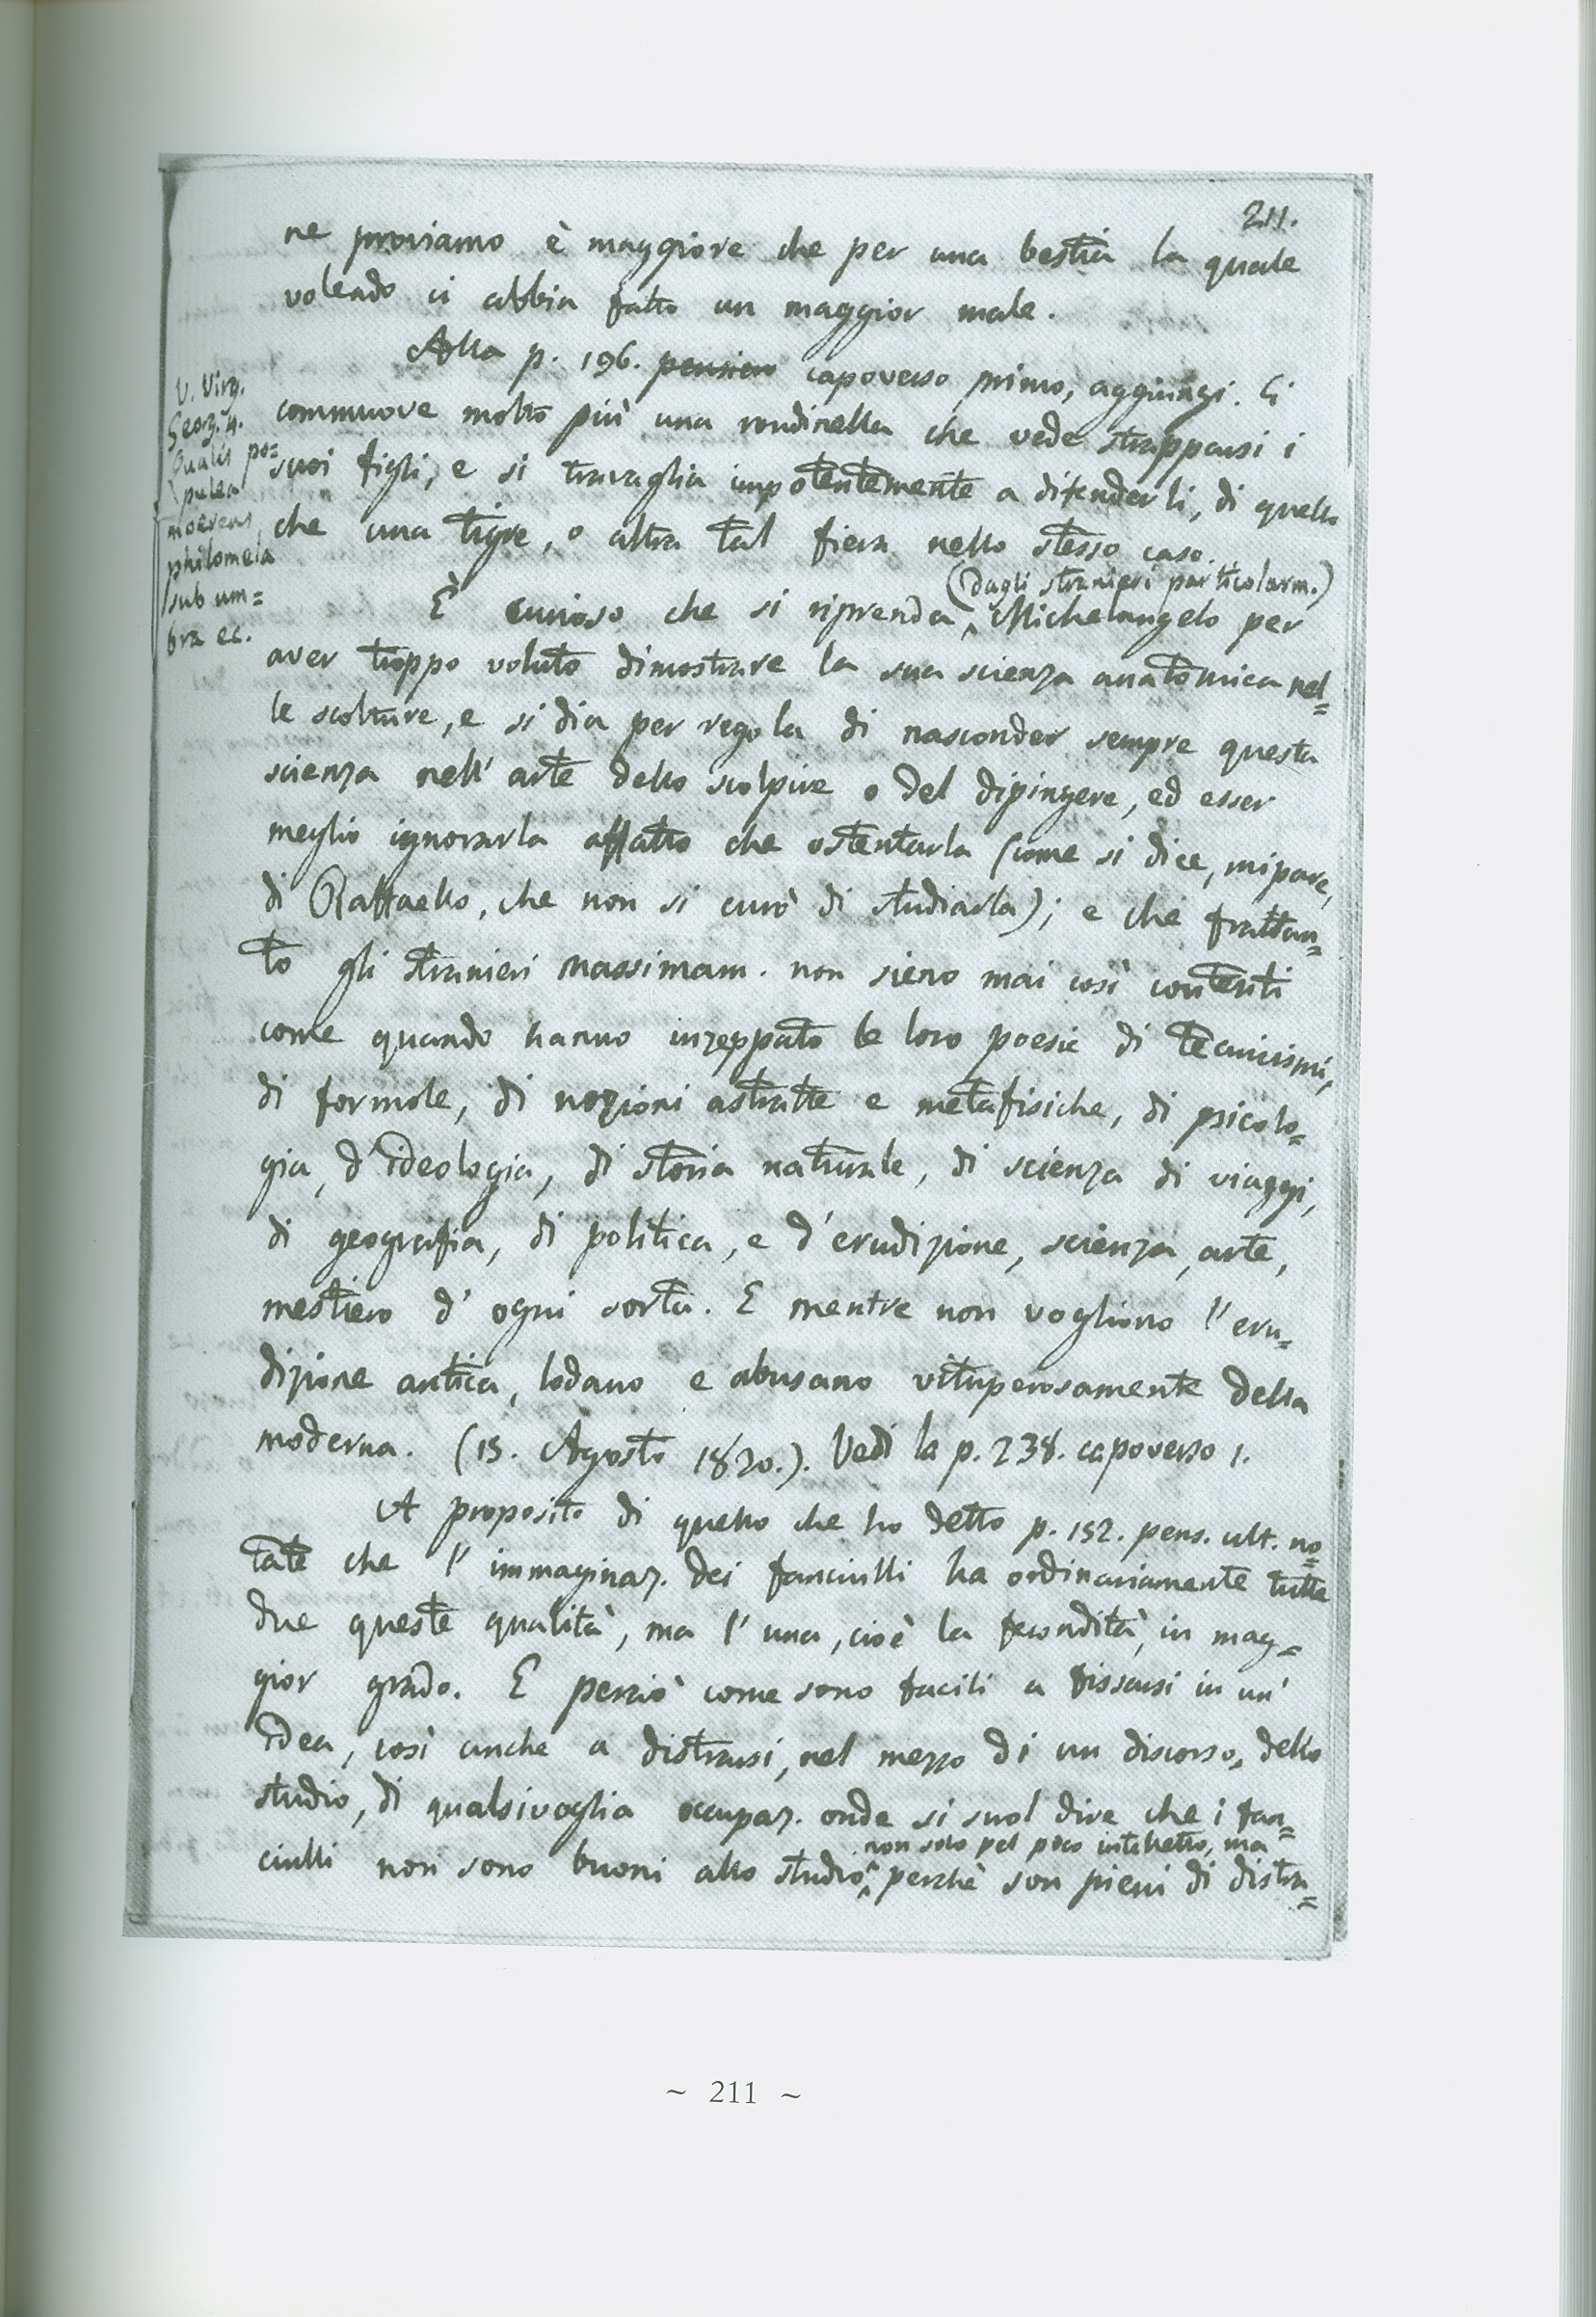 211.
ne proviamo è maggiore che per una bestia la quale
volendo ci abbia fatto un maggior male.
Alla p. 196. pensiero capoverso primo, aggiungi. Ci
commuove molto più una rondinella che vede strapparsi i
suoi figli, e si travaglia impotentemente a difenderli, di quello
che una tigre, o altra tal fiera nello stesso caso.
V. Virg.
Georg. 4.
Qualis po=
pulea
moerens
philomela
sub um=
bra ec.
(dagli stranieri particolarm.)
È curioso che si riprenda Michelangelo per
aver troppo voluto dimostrare la sua scienza anatomica nel=
le scolture, e si dia per regola di nasconder sempre questa
scienza nell'arte dello scolpire o del dipingere, ed esser
meglio ignorarla affatto che ostentarla (come si dice, mi pare,
di Raffaello, che non si curò di studiarla); e che frattan=
to gli stranieri massimam. non sieno mai così contenti
come quando hanno inzeppato le loro poesie di tecnicismi,
di formole, di nozioni astratte e metafisiche, di psicolo=
gia, d'ideologia, di storia naturale, di scienza di viaggi,
di geografia, di politica, e d'erudizione, scienza, arte,
mestiero d'ogni sorta. E mentre non vogliono l'eru=
dizione antica, lodano e abusano vituperosamente della
moderna. (15. Agosto 1820.). Vedi la p. 238. capoverso 1.
A proposito di quello che ho detto p. 152. pens. ult. no=
tate che l'immaginaz. dei fanciulli ha ordinariamente tutte
due queste qualità, ma l'una, cioè la fecondità, in mag=
gior grado. E perciò come sono facili a fissarsi in un'
idea, così anche a distrarsi, nel mezzo di un discorso, dello
studio, di qualsivoglia occupaz. onde si suol dire che i fan=
non solo pel poco intelletto, ma
ciulli non sono buoni allo studio, perchè son pieni di distra=
~ 211 ~